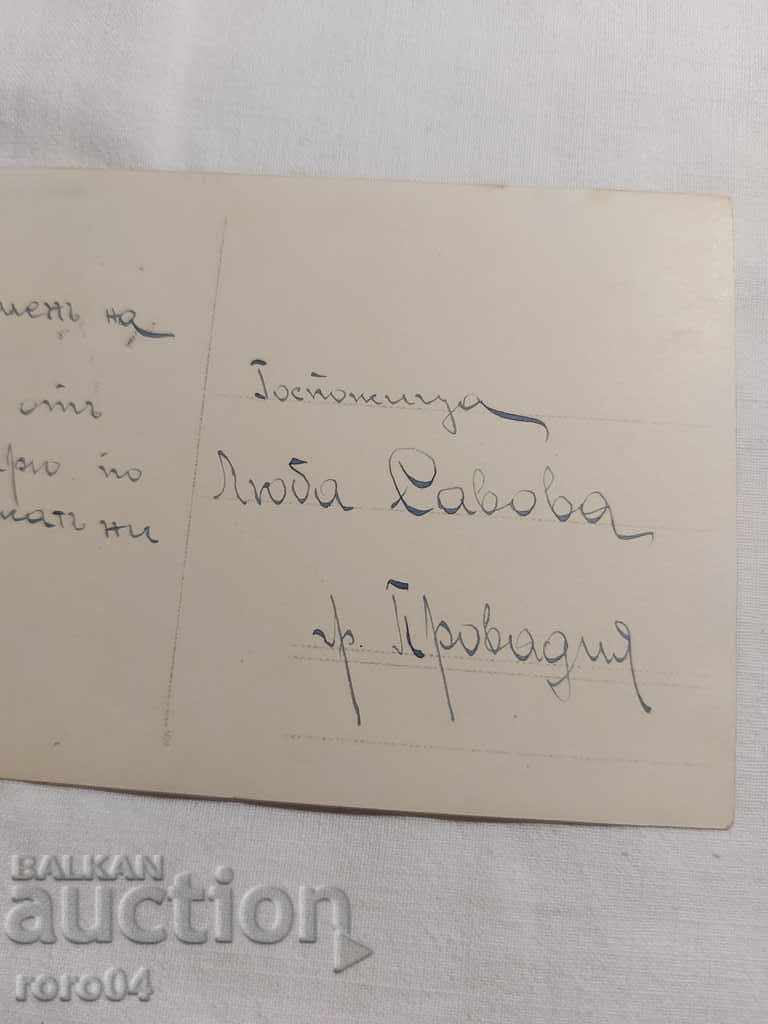 на
отъ
по
ни
Госпожица
Люба Савова
гр. Провадия
BALKAN
auction
roro04